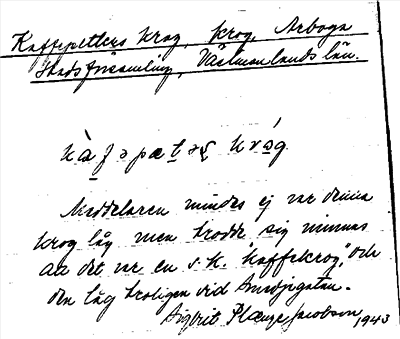 Kaffepetters krog, krog, Arboga
Stadsförsamling, Västmanlands län.
kàfəpætəʂ króg
Meddelaren mindes ej var denna
krog låg men trodde sig minnas
att det var en s.k. "kaffekrog", och
den låg troligen vid Smedjegatan.
Sigbrit Plænge Jacobson 1943